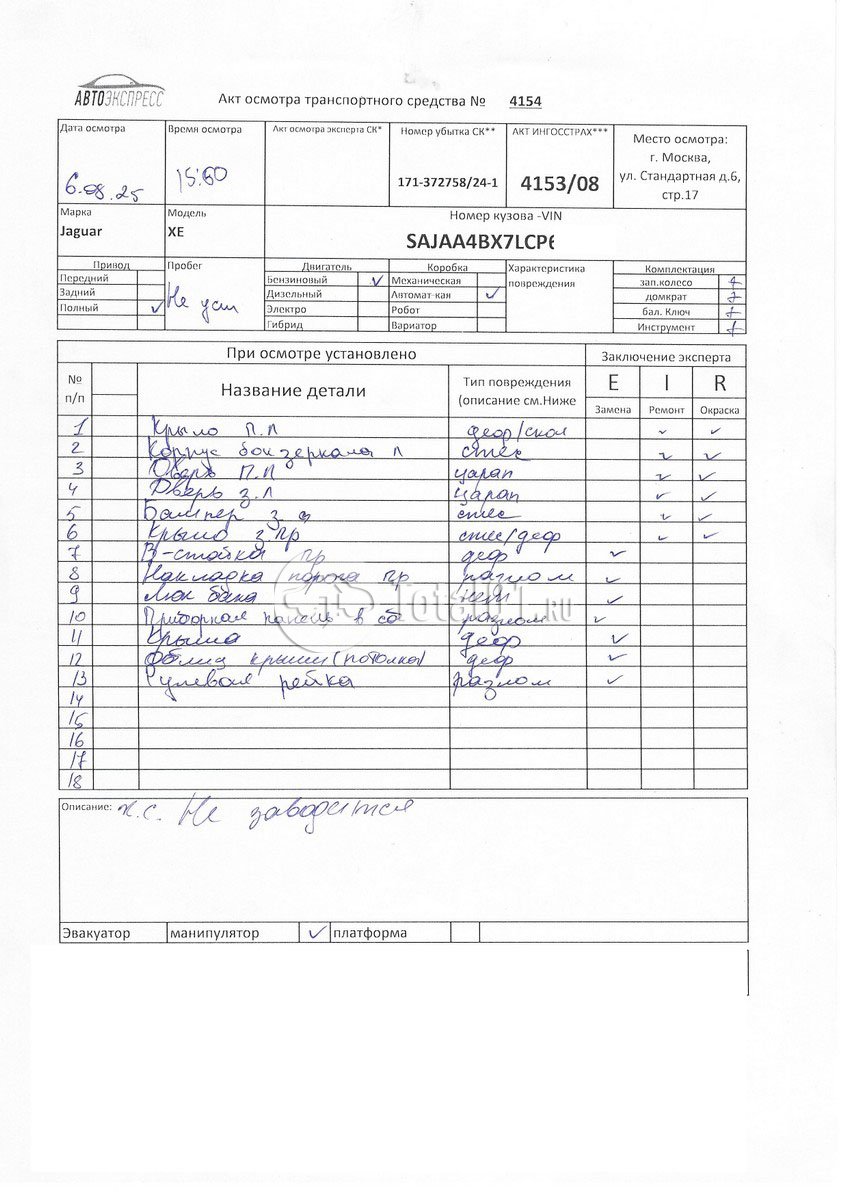 АВТОЭКСПРЕСС
Акт осмотра транспортного средства № 4154
Дата осмотра
6.08.25
Время осмотра
15:50
Акт осмотра эксперта СК*
Номер убытка СК**
171-372758/24-1
АКТ ИНГОССТРАХ***
4153/08
Место осмотра:
г. Москва,
ул. Стандартная д.6,
стр.17
Марка
Jaguar
Модель
XE
Номер кузова -VIN
SAJAA4BX7LCP6
Привод
Передний
Задний
Полный ✓
Пробег
Не уст
Двигатель
Бензиновый ✓
Дизельный
Электро
Гибрид
Коробка
Механическая
Автомат-кая ✓
Робот
Вариатор
Характеристика
повреждения
Комплектация
зап.колесо +
домкрат +
бал. Ключ +
Инструмент +
При осмотре установлено
Заключение эксперта
№
п/п
Название детали
Тип повреждения
(описание см.Ниже
E I R
Замена Ремонт Окраска
1 Крыло П.Л деф/скол ✓ ✓
2 Корпус бок зеркала л стес ✓ ✓
3 Дверь П.Л царап ✓ ✓
4 Дверь З.Л царап ✓ ✓
5 Бампер з стес ✓ ✓
6 Крыло з.Пр стес/деф ✓ ✓
7 В-стойка пр деф ✓
8 Накладка порога пр разлом ✓
9 Люк бака нет ✓
10 Приборная панель в сб разлом ✓
11 Крыша деф ✓
12 Облиц крыши (потолка) деф ✓
13 Рулевая рейка разлом ✓
14
15
16
17
18
Total01.RU
Описание: Не заводится
Эвакуатор манипулятор ✓ платформа